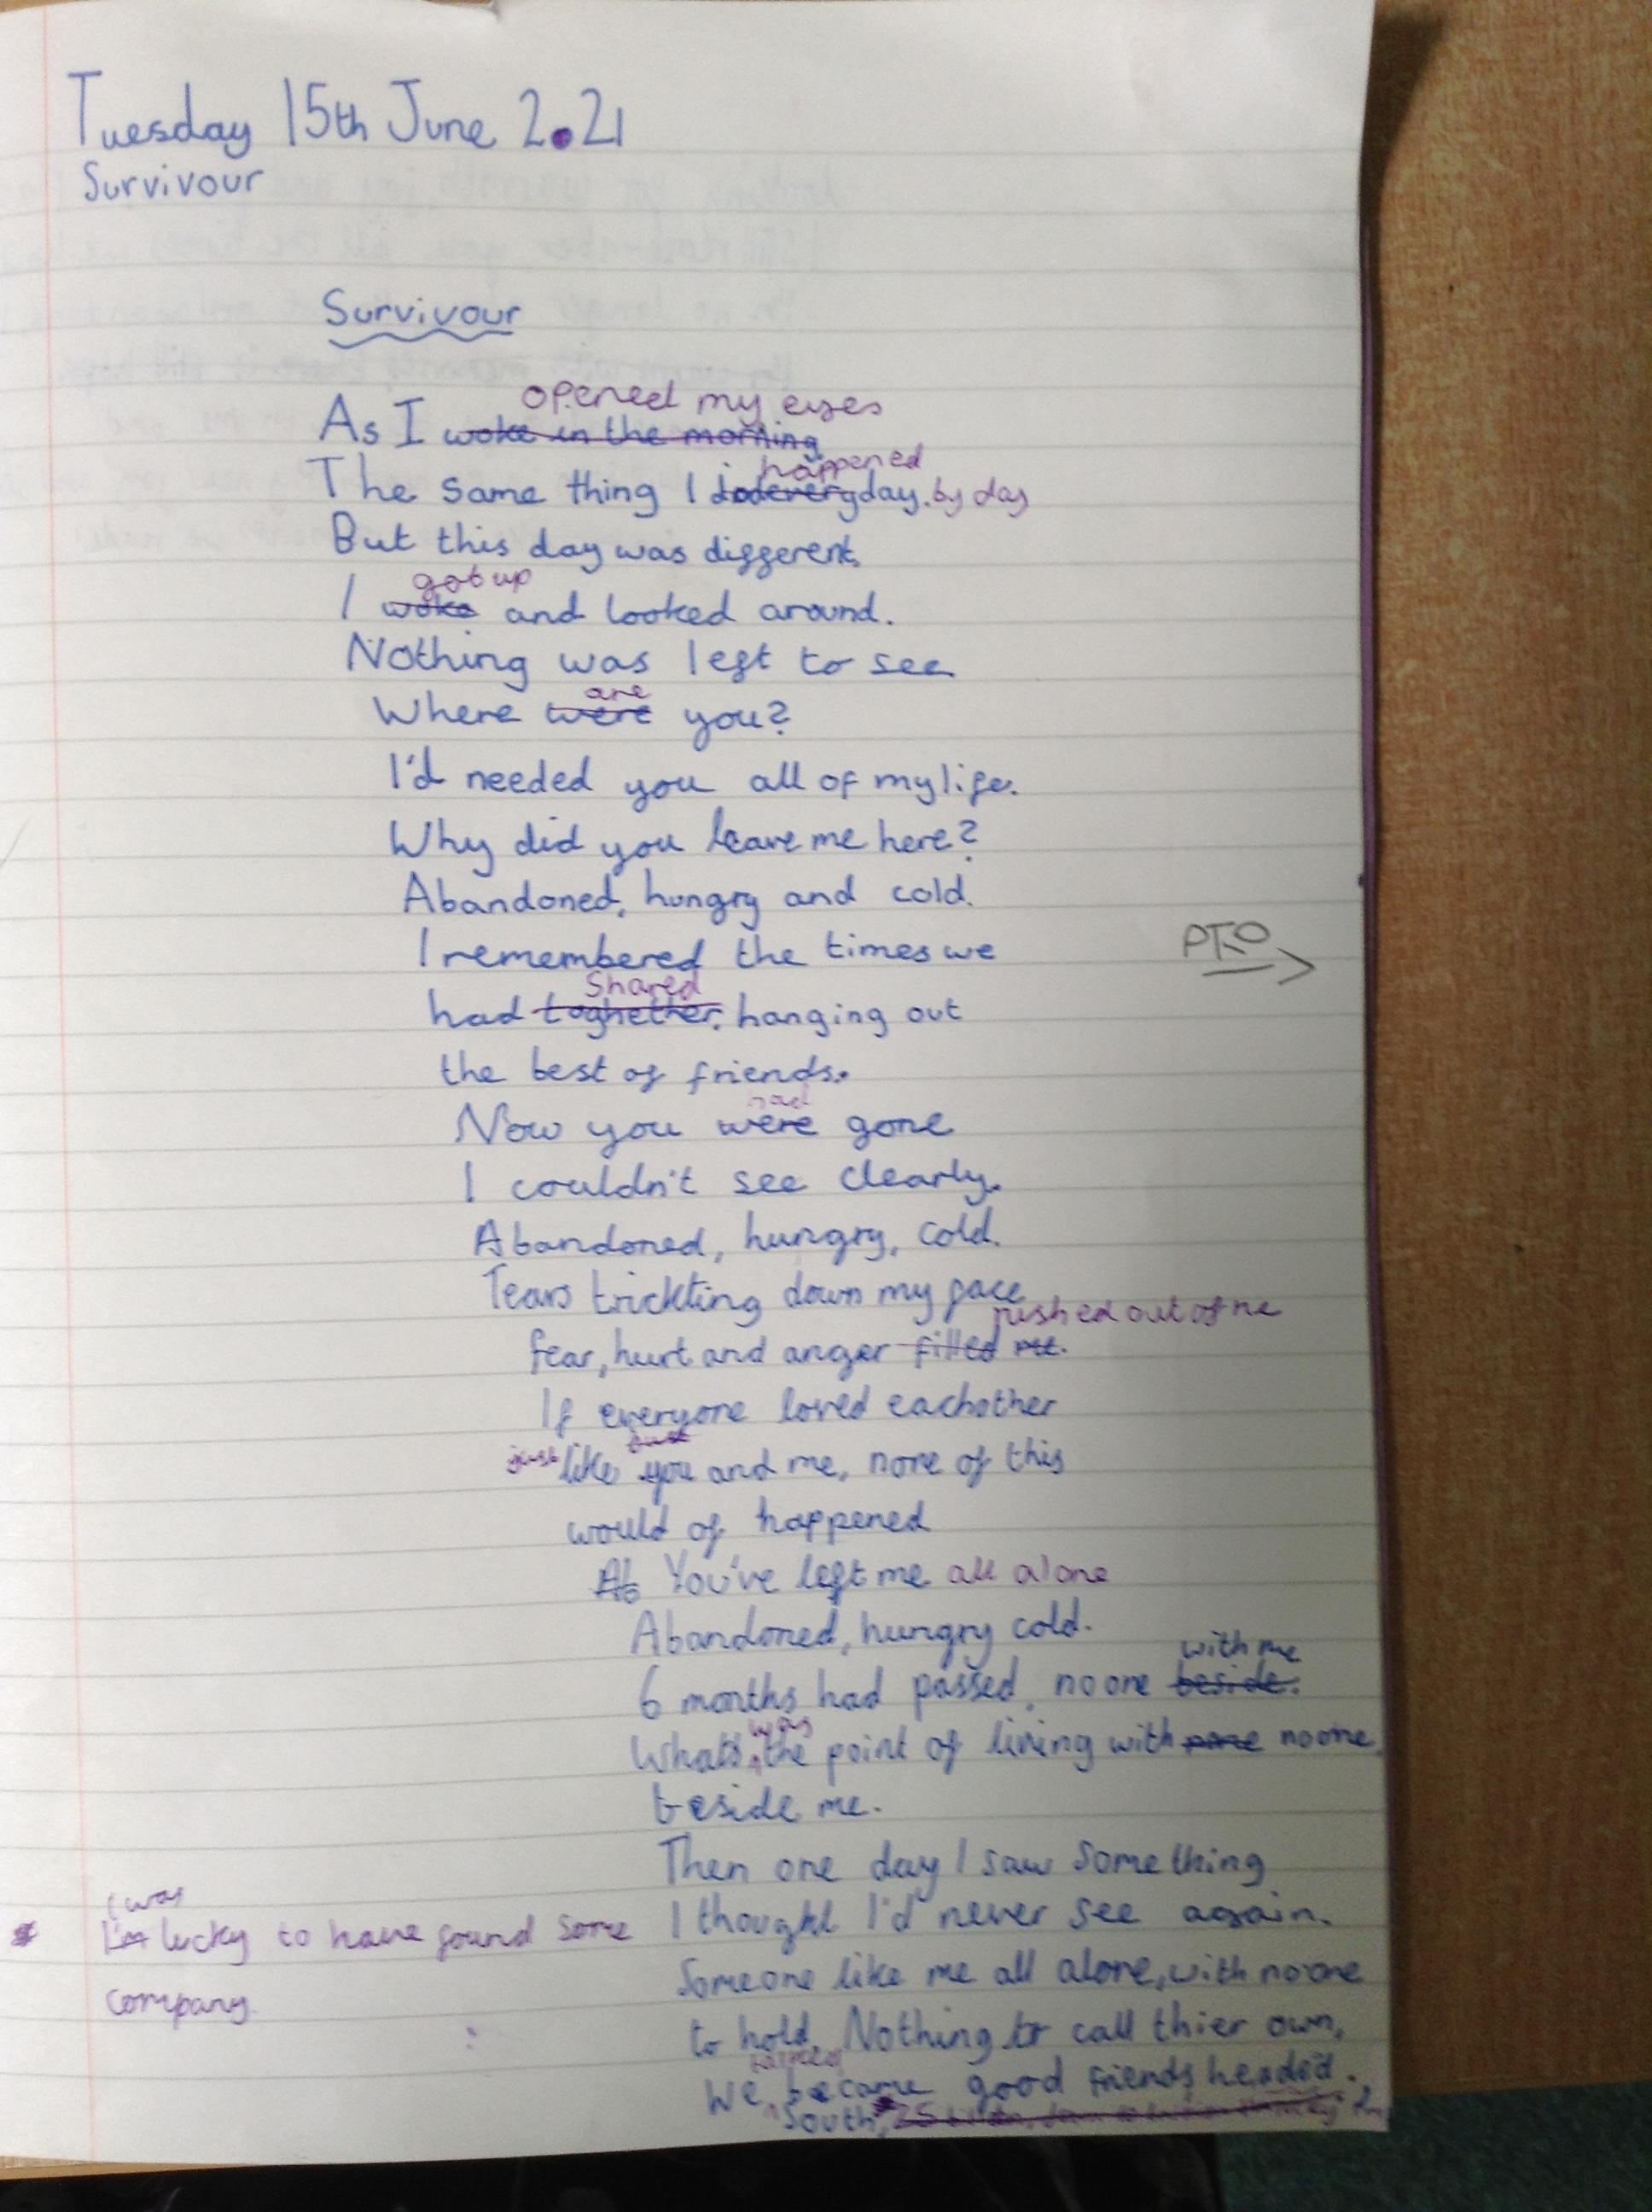 Tuesday 15th June 2021
Survivour
Survivour
opened my eyes
As I woke in the morning
happened
The same thing I do every day. by day
But this day was different.
got up
I woke and looked around.
Nothing was left to see
are
Where were you?
I'd needed you all of my life.
Why did you leave me here?
Abandoned, hungry and cold.
I remembered the times we
PTO
Shared
had toghether, hanging out
the best of friends.
had
Now you were gone
I couldn't see clearly.
Abandoned, hungry, cold.
Tears trickling down my face
rushed out of me
fear, hurt and anger filled me.
If everyone loved eachother
just
just like you and me, none of this
would of happened
Ab You've left me all alone
Abandoned, hungry cold.
with me
6 months had passed, no one beside.
was
What's the point of living with none no one
beside me.
Then one day I saw something
I was
I'm lucky to have found some
company.
I thought I'd never see again.
Someone like me all alone, with no one
to hold. Nothing to call thier own,
We became good friends, headed
South,